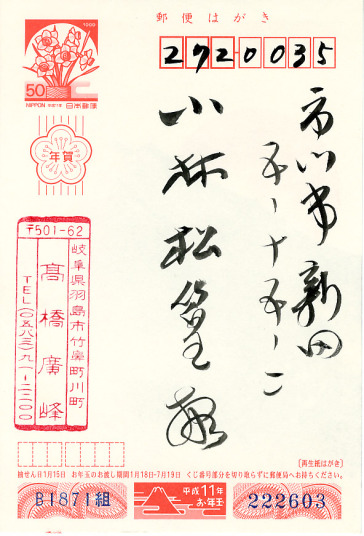 郵便はがき
1999
50
NIPPON 平成11年 日本郵便
272 0035
年賀
市川市新田
五ー十五ー二
小林松篁様
〒501-62
岐阜県羽島市竹鼻町川町
髙橋廣峰
TEL(〇五八三)九一ー二二〇〇
〔再生紙はがき〕
抽せん日1月15日 お年玉のお渡し期間1月18日-7月19日 くじ番号部分を切り取らずに郵便局へお持ちください。
B1871組
平成11年
お年玉
222603